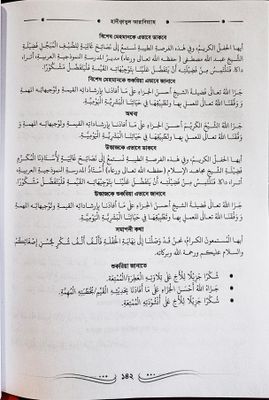 হাদীকাতুল আরাবিয়্যাহ
বিশেষ মেহমানকে এভাবে ডাকবে
أيها الحفل الكريم، وفي هذه الفرصة الطيبة نستمع إلى نصائح غالية للضيف المبجل فضيلة
الشيخ عبد الله مصطفى (حفظه الله تعالى ورعاه) مدير المدرسة النموذجية العربية، أترا،
داكا. فألتمس من فضيلته أن يزين الحفلة بتوجيهاته القيمة فليتفضل مشكورا.
বিশেষ মেহমানকে শুকরিয়া এভাবে জানাবে
جزا الله تعالى فضيلة الشيخ أحسن الجزاء على ما أفادنا بإرشاداته القيمة وتوجيهاته المهمة
و وفقنا الله تعالى للعمل بها وتطبيقها في حياتنا البشرية اليومية.
অথবা
جزا الله تعالى الشيخ الكريم أحسن الجزاء على ما أفادنا بإرشاداته القيمة وتوجيهاته المهمة
و وفقنا الله تعالى للعمل بها وتطبيقها في حياتنا البشرية اليومية.
উস্তাজকে এভাবে ডাকবে
أيها الحفل الكريم، وفي هذه الفرصة الطيبة نستمع إلى نصائح غالية لأستاذنا المكرم
فضيلة الشيخ مجاهد الإسلام (حفظه الله تعالى ورعاه) أستاذ المدرسة النموذجية العربية،
أترا، داكا. فألتمس من فضيلته أن يزين الحفلة بتوجيهاته القيمة فليتفضل مشكورا.
উস্তাজকে শুকরিয়া এভাবে জানাবে
جزا الله تعالى فضيلة الشيخ أحسن الجزاء على ما أفادنا بإرشاداته القيمة وتوجيهاته المهمة
و وفقنا الله تعالى للعمل بها وتطبيقها في حياتنا البشرية اليومية.
সমাপনী কথা
أيها المستمعون الكرام، نحن قد وصلنا إلى نهاية الحفلة فألف ألف شكر لحسن إصغائكم
والسلام عليكم ورحمة الله وبركاته.
শুকরিয়া জানাতে
• شكرا جزيلا للأخ على تلاوته العطرة/الممتعة.
• جزاه الله أحسن الجزاء على ما أفادنا بحديثه القيم/بخطبته المهمة.
• شكرا جزيلا للأخ على أنشودته الممتعة.
১৪২